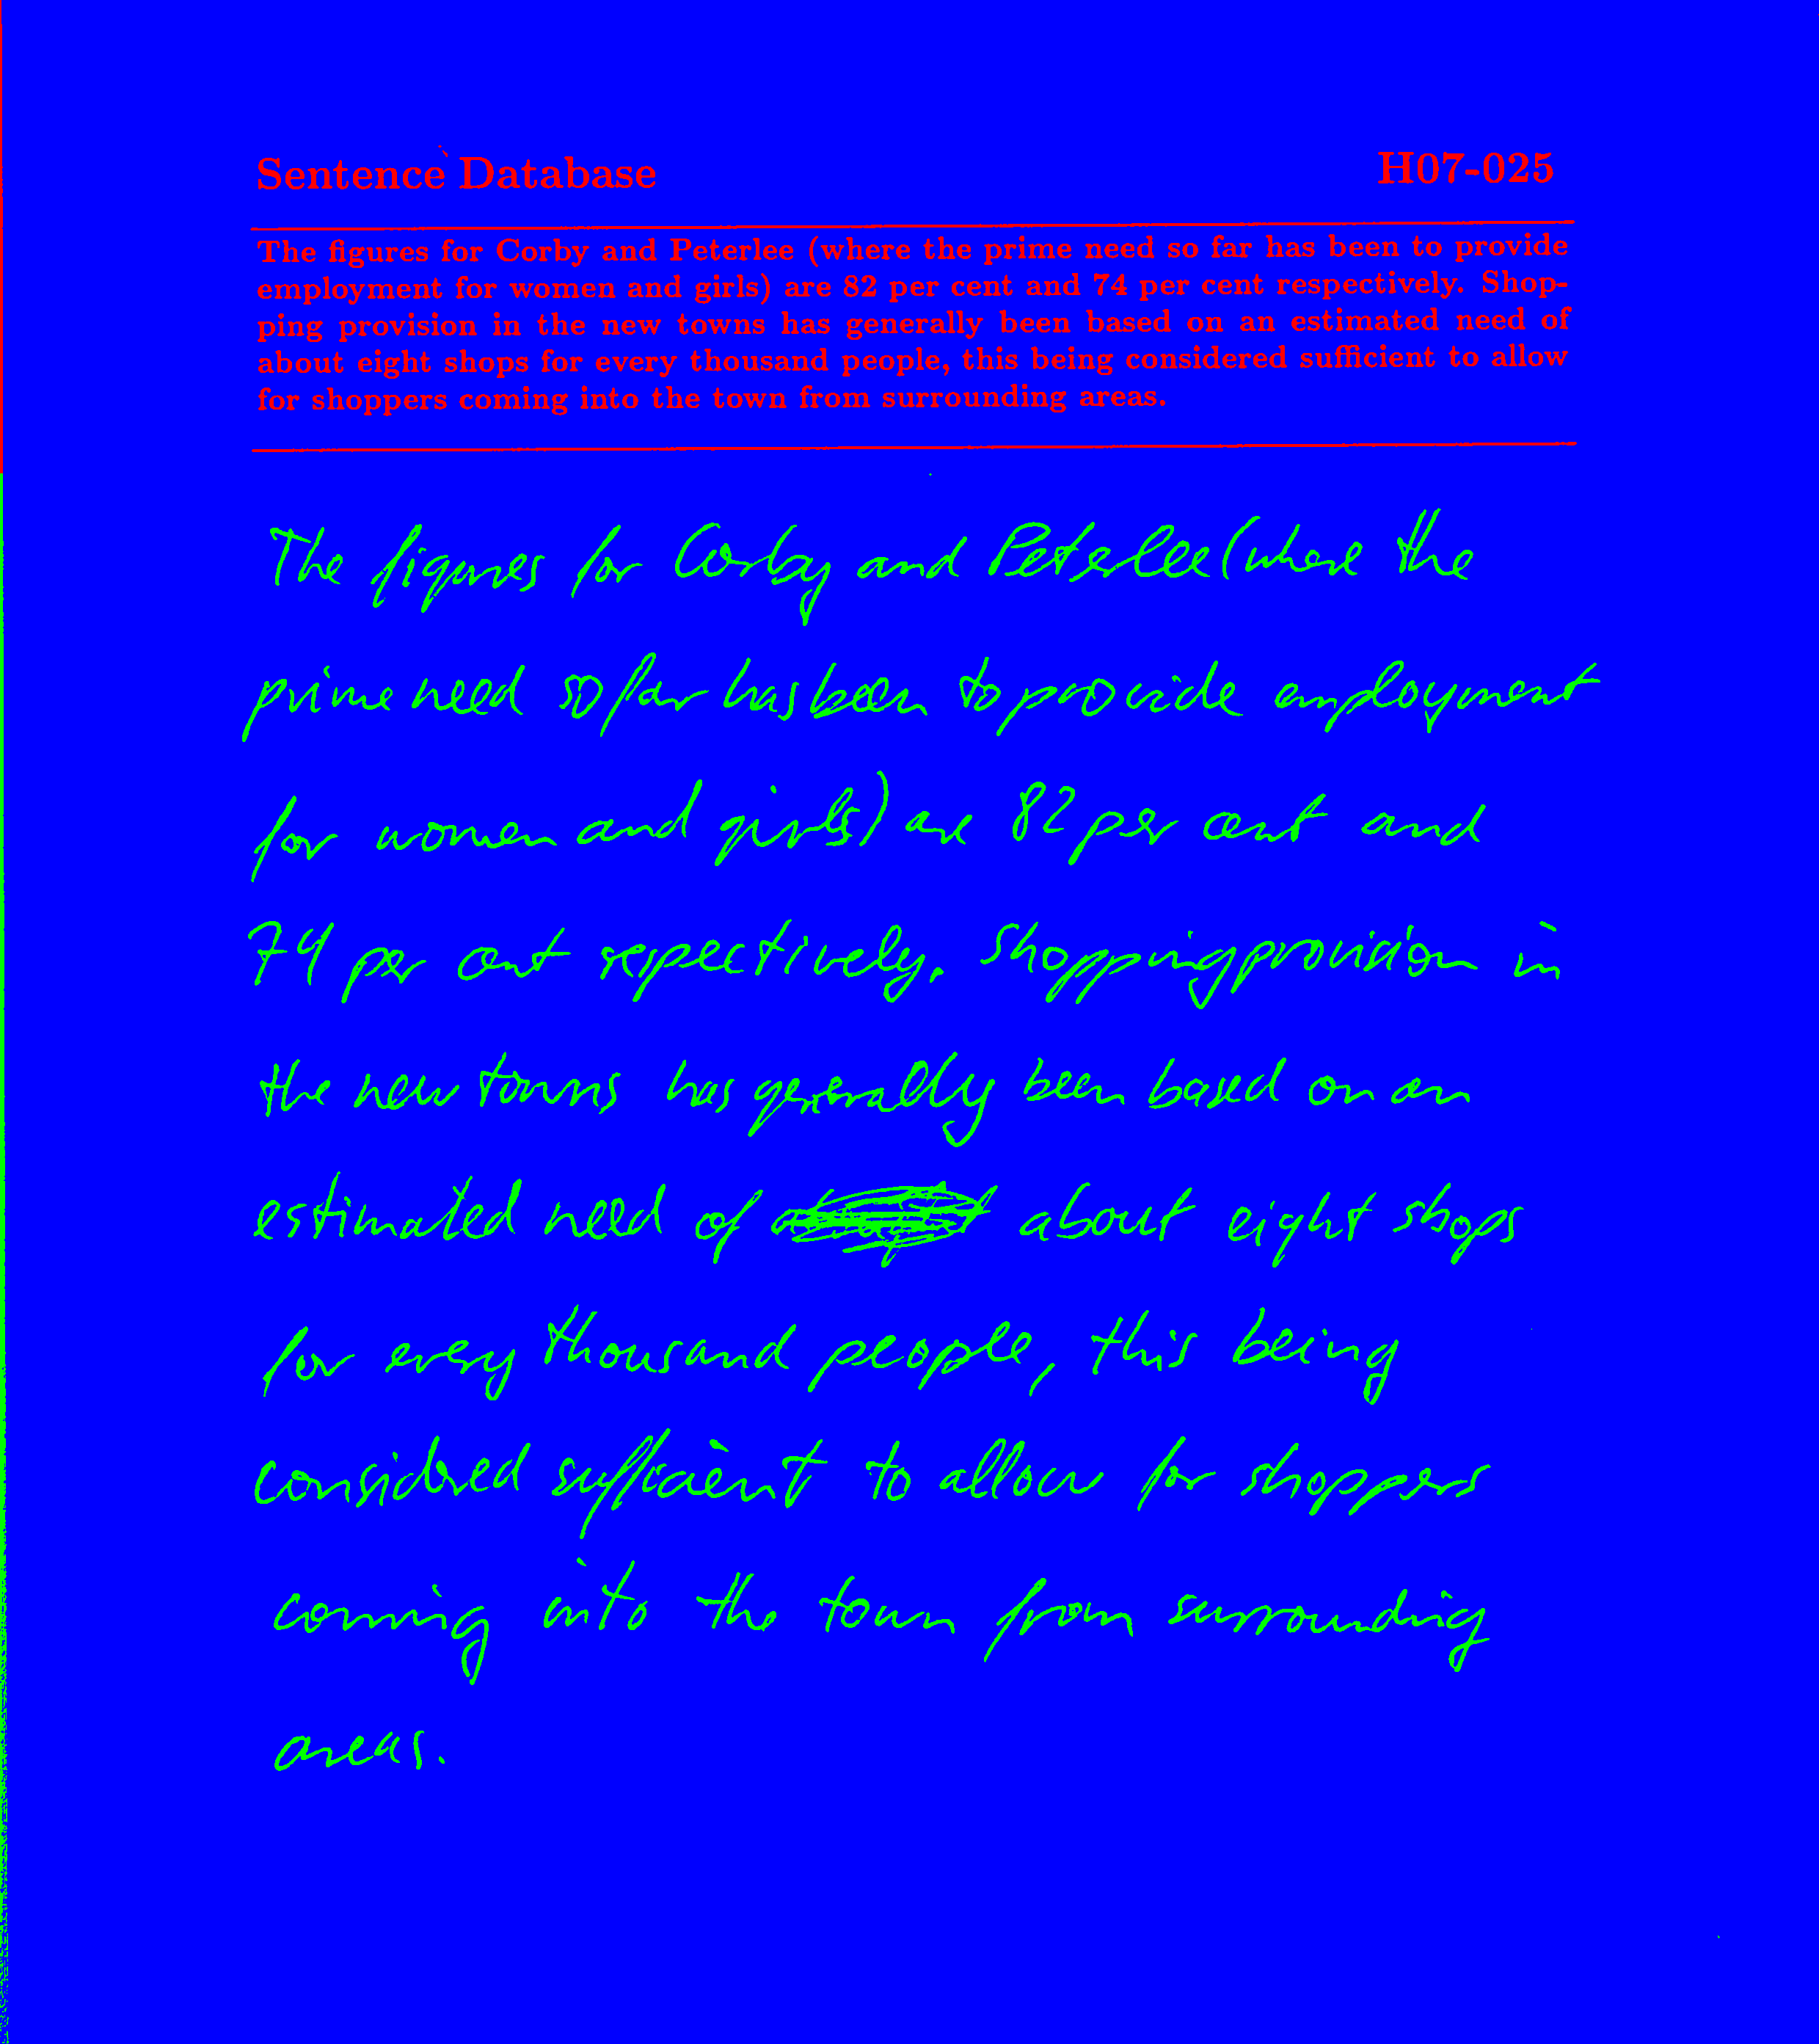 Sentence Database H07-025
The figures for Corby and Peterlee (where the prime need so far has been to provide
employment for women and girls) are 82 per cent and 74 per cent respectively. Shop-
ping provision in the new towns has generally been based on an estimated need of
about eight shops for every thousand people, this being considered sufficient to allow
for shoppers coming into the town from surrounding areas.
The figures for Corby and Peterlee (where the
prime need so far has been to provide employment
for women and girls) are 82 per cent and
74 per cent respectively. Shopping provision in
the new towns has generally been based on an
estimated need of about eight shops
for every thousand people, this being
considered sufficient to allow for shoppers
coming into the town from surrounding
areas.